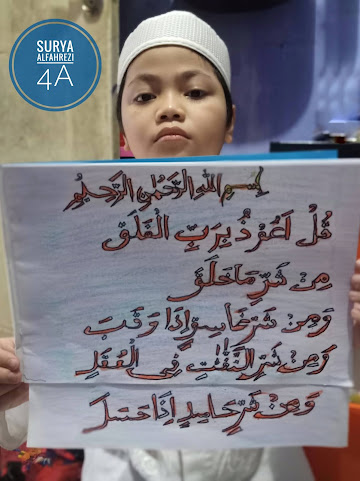 SURYA
ALFAHREZI
4A
بِسْمِ اللهِ الرَّحْمٰنِ الرَّحِيْمِ
قُلْ اَعُوْذُ بِرَبِّ الْفَلَقِ
مِنْ شَرِّ مَا خَلَقَ
وَمِنْ شَرِّ غَاسِقٍ اِذَا وَقَبَ
وَمِنْ شَرِّ النَّفّٰثٰتِ فِى الْعُقَدِ
وَمِنْ شَرِّ حَاسِدٍ اِذَا حَسَدَ